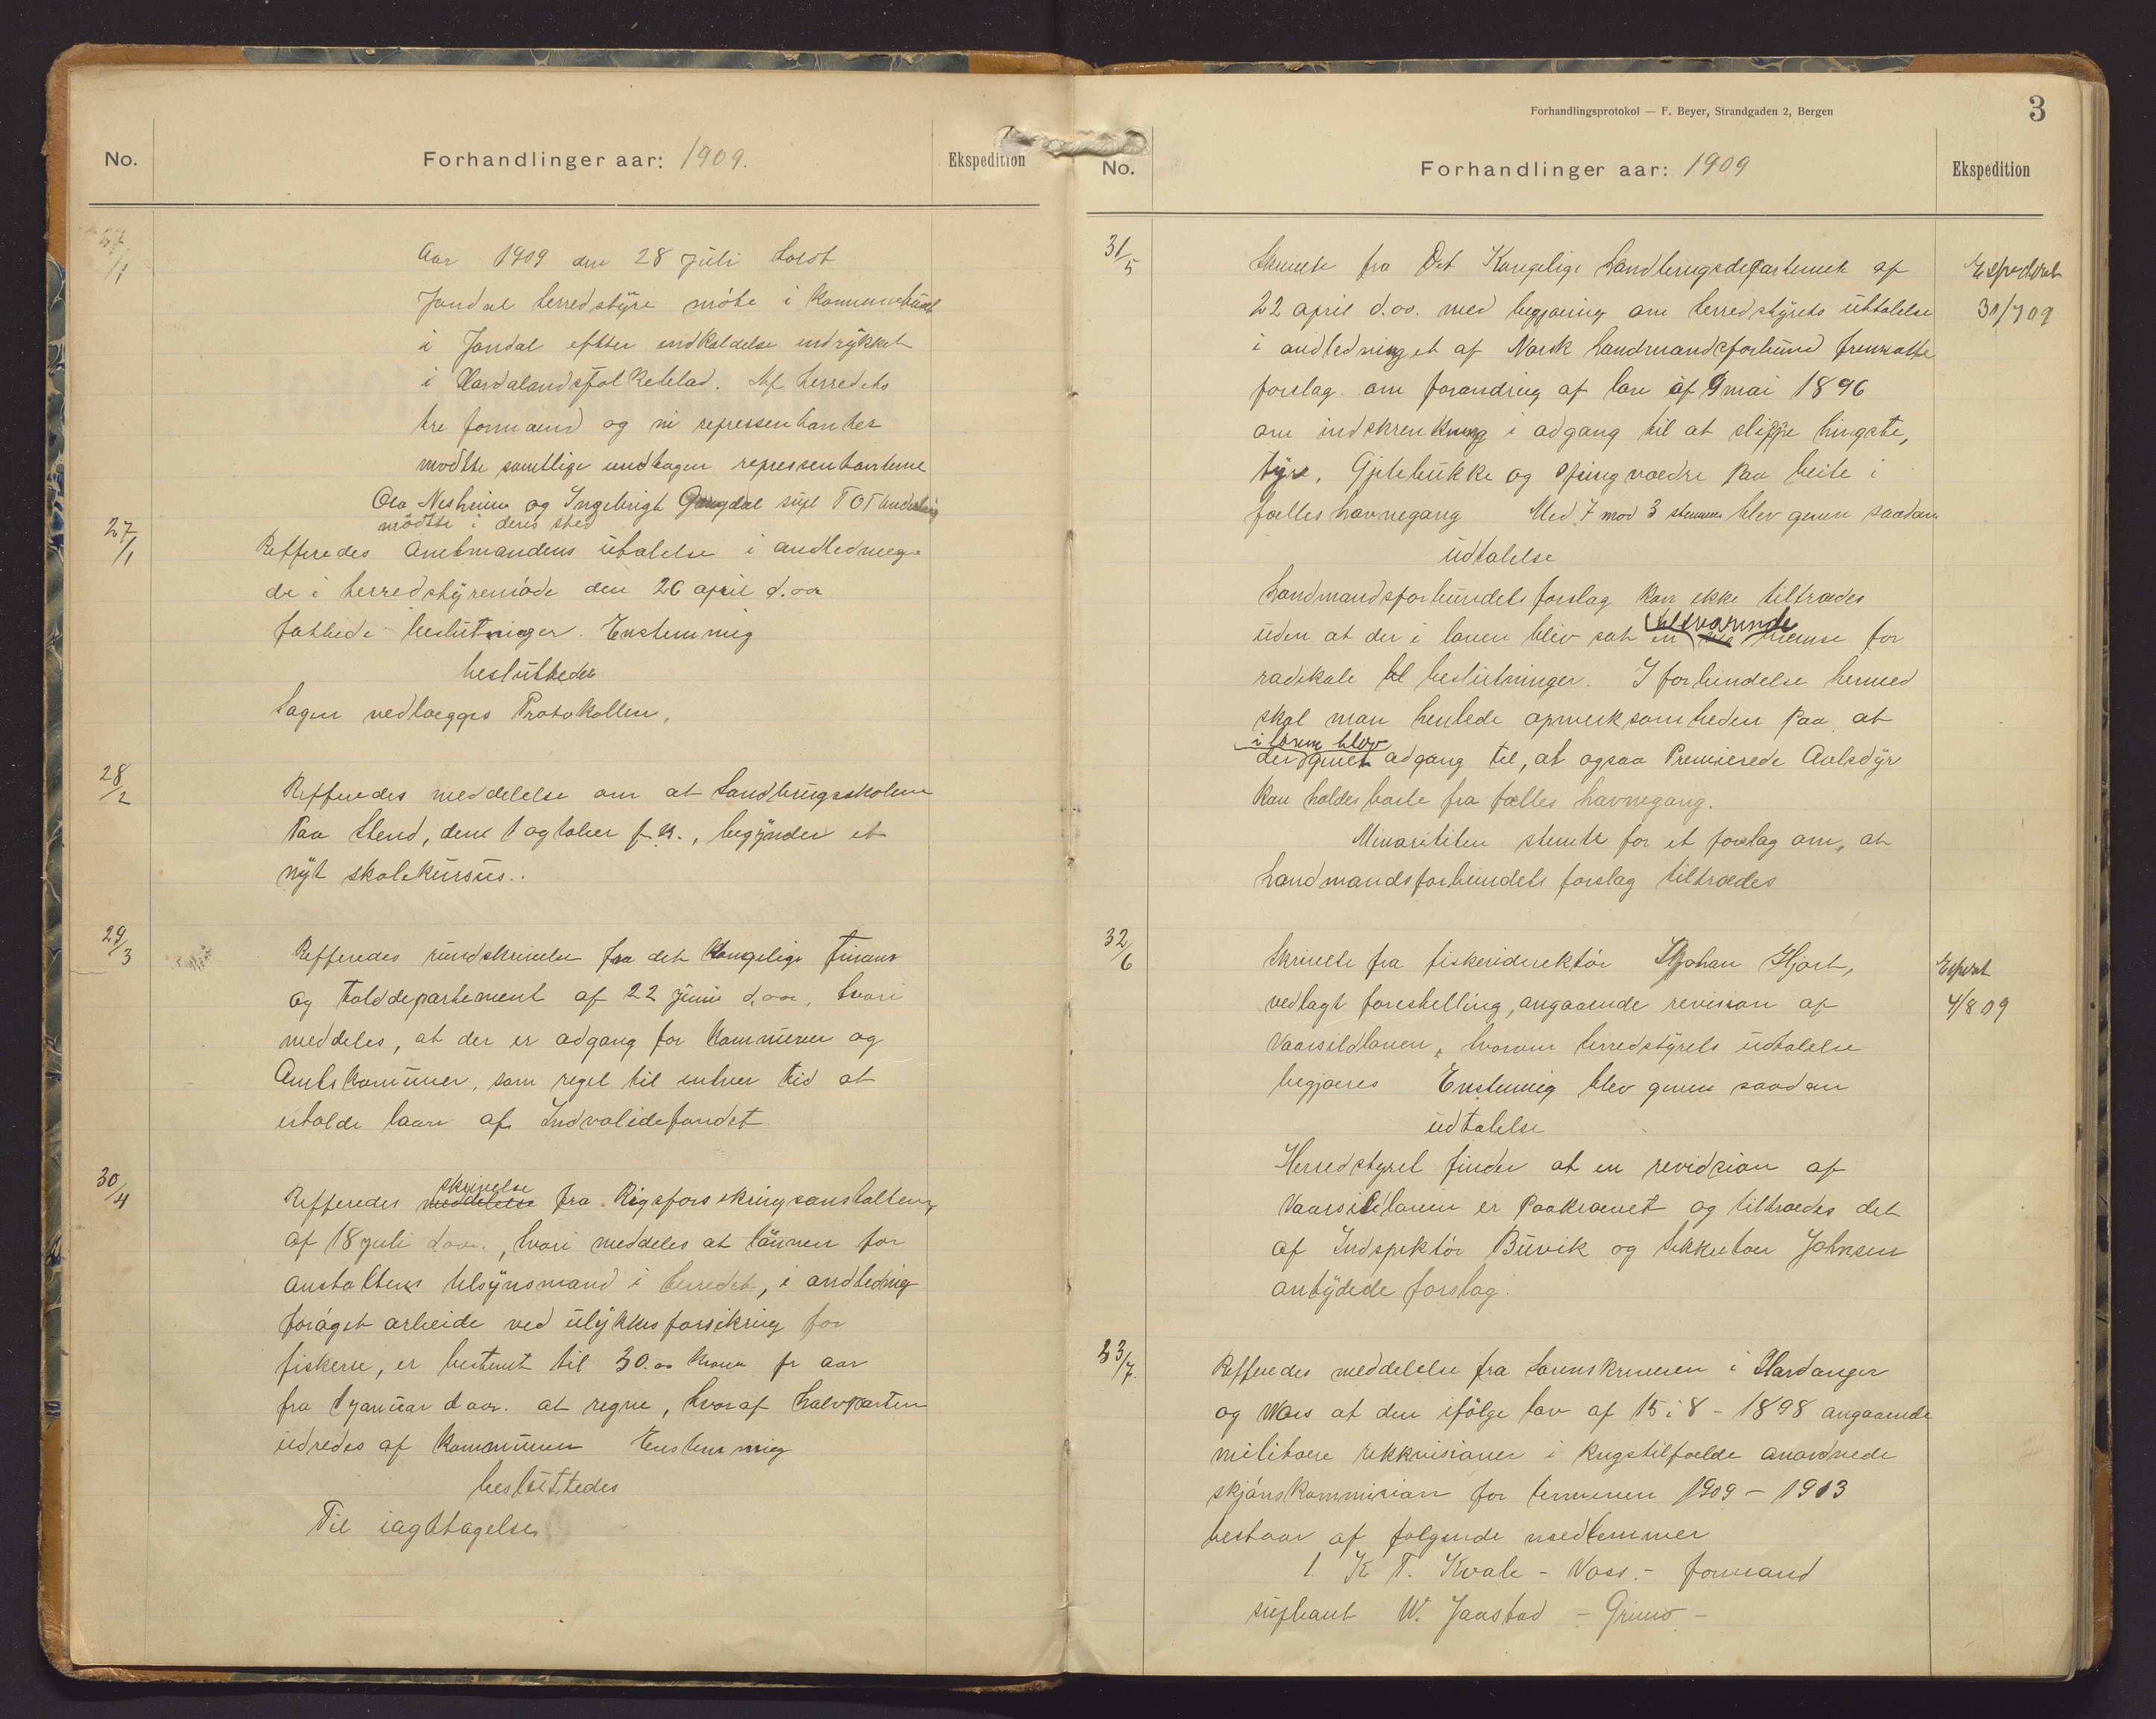 No.
Forhandlinger aar: 1909.
Ekspedition
27/1
Aar 1909 den 28 juli holdt
Jondal herredstyre møte i kommunehuset
i Jondal efter indkaldelse indrykket
i Hardalandsfolkeblad. Af herredets
tre formænd og ni repressentanter
mødtte samtlige undtagen repressentanterne
Ola Nesheim og Ingebrigt supl T O Thunderlang
mødtte i deres sted
27/1
Refferedes amtmandens utalelse i andledning
de i herredstyremøde den 26 april d.aa
fattede beslutninger. Enstemmig
besluttedes
Sagen vedlægges Protokollen,
28/2
Refferedes meddelelse om at Landbrugsskolen
Paa Stend, den 1 ogtober f.k., begynder et
nyt skolekursus..
29/3
Refferedes rundskrivelse fra det kongelige finans
og tolddepartement af 22 juni d,aa, hvori
meddeles, at der er adgang for kommuner og
Amtskomuner, som regel til enhver tid at
erholde laan af Indvalidefondet
30/4
skrivelse
Refferedes meddelelse fra Rigsforsikringsanstalten,
af 18 juli d.aa., hvori meddeles at lønnen for
anstaltens tilsynsmand i herredet, i andledning
forøget arbeide ved ulykkesforsikring for
fiskere, er bestemt til 30.00 kroner pr aar
fra 1 januar d aa. at regne, hvoraf halvparten
udredes af kommunen Enstemmig
besluttedes
Til iagttagelse
Forhandlingsprotokol — F. Beyer, Strandgaden 2, Bergen
3
No.
Forhandlinger aar: 1909
Ekspedition
31/5
Skrivelse fra Det Kongelige Landbrugsdepartement af
Expederet
22 april d.aa. med begjæring om herredstyrets uttalelse
31/7 09
i andledning et af Norsk Landmandsforbund fremsatte
forslag om forandring af lov af 9 mai 1896
om indskrenkning i adgang til at slippe hingste,
tyre, Gjetebukke og væædre paa beite i
fælles havnegang Med 7 mod 3 stemmer blev given saadan
udtalelse
Landmandsforbundets forslag kan ikke tiltrædes
tilsvarende
uden at der i loven blev sat en hemse for
radikale beslutninger. I forbindelse hermed
skal man henlede opmerksomheden paa at
i loven blev
der givet adgang til, at ogsaa Premierede Avlsdyr
kan holdes borte fra fælles havnegang.
Minoriteten stemte for et forslag om, at
Landmandsforbundets forslag tiltrædes
32/6
Skrivelse fra fiskeridirektør Johan Hjort,
Exped
vedlagt forestelling, angaaende revison af
4/8 09
Vaarsildloven, hvorom herredstyrets udtalelse
begjæres Enstemmig blev given saadan
udtalelse
Herredstyret finder at en revidsion af
Vaarsildloven er Paakrævet og tiltrædes det
af Indspektør Buvik og sekketær Johnsen
antydede forslag.
33/7.
Refferedes meddelelse fra Sorenskriveren i Hardanger
og Vos at den ifølge lov af 15 i 8 - 1898 angaaende
militære rekkvisioner i krigstilfælde anordnede
skjønskommision for terminen 1909 - 1913
bestaar af følgende medlemmer
1. K T. Kvale - Voss. - formand
supleant W. Jaastad - Grimo -